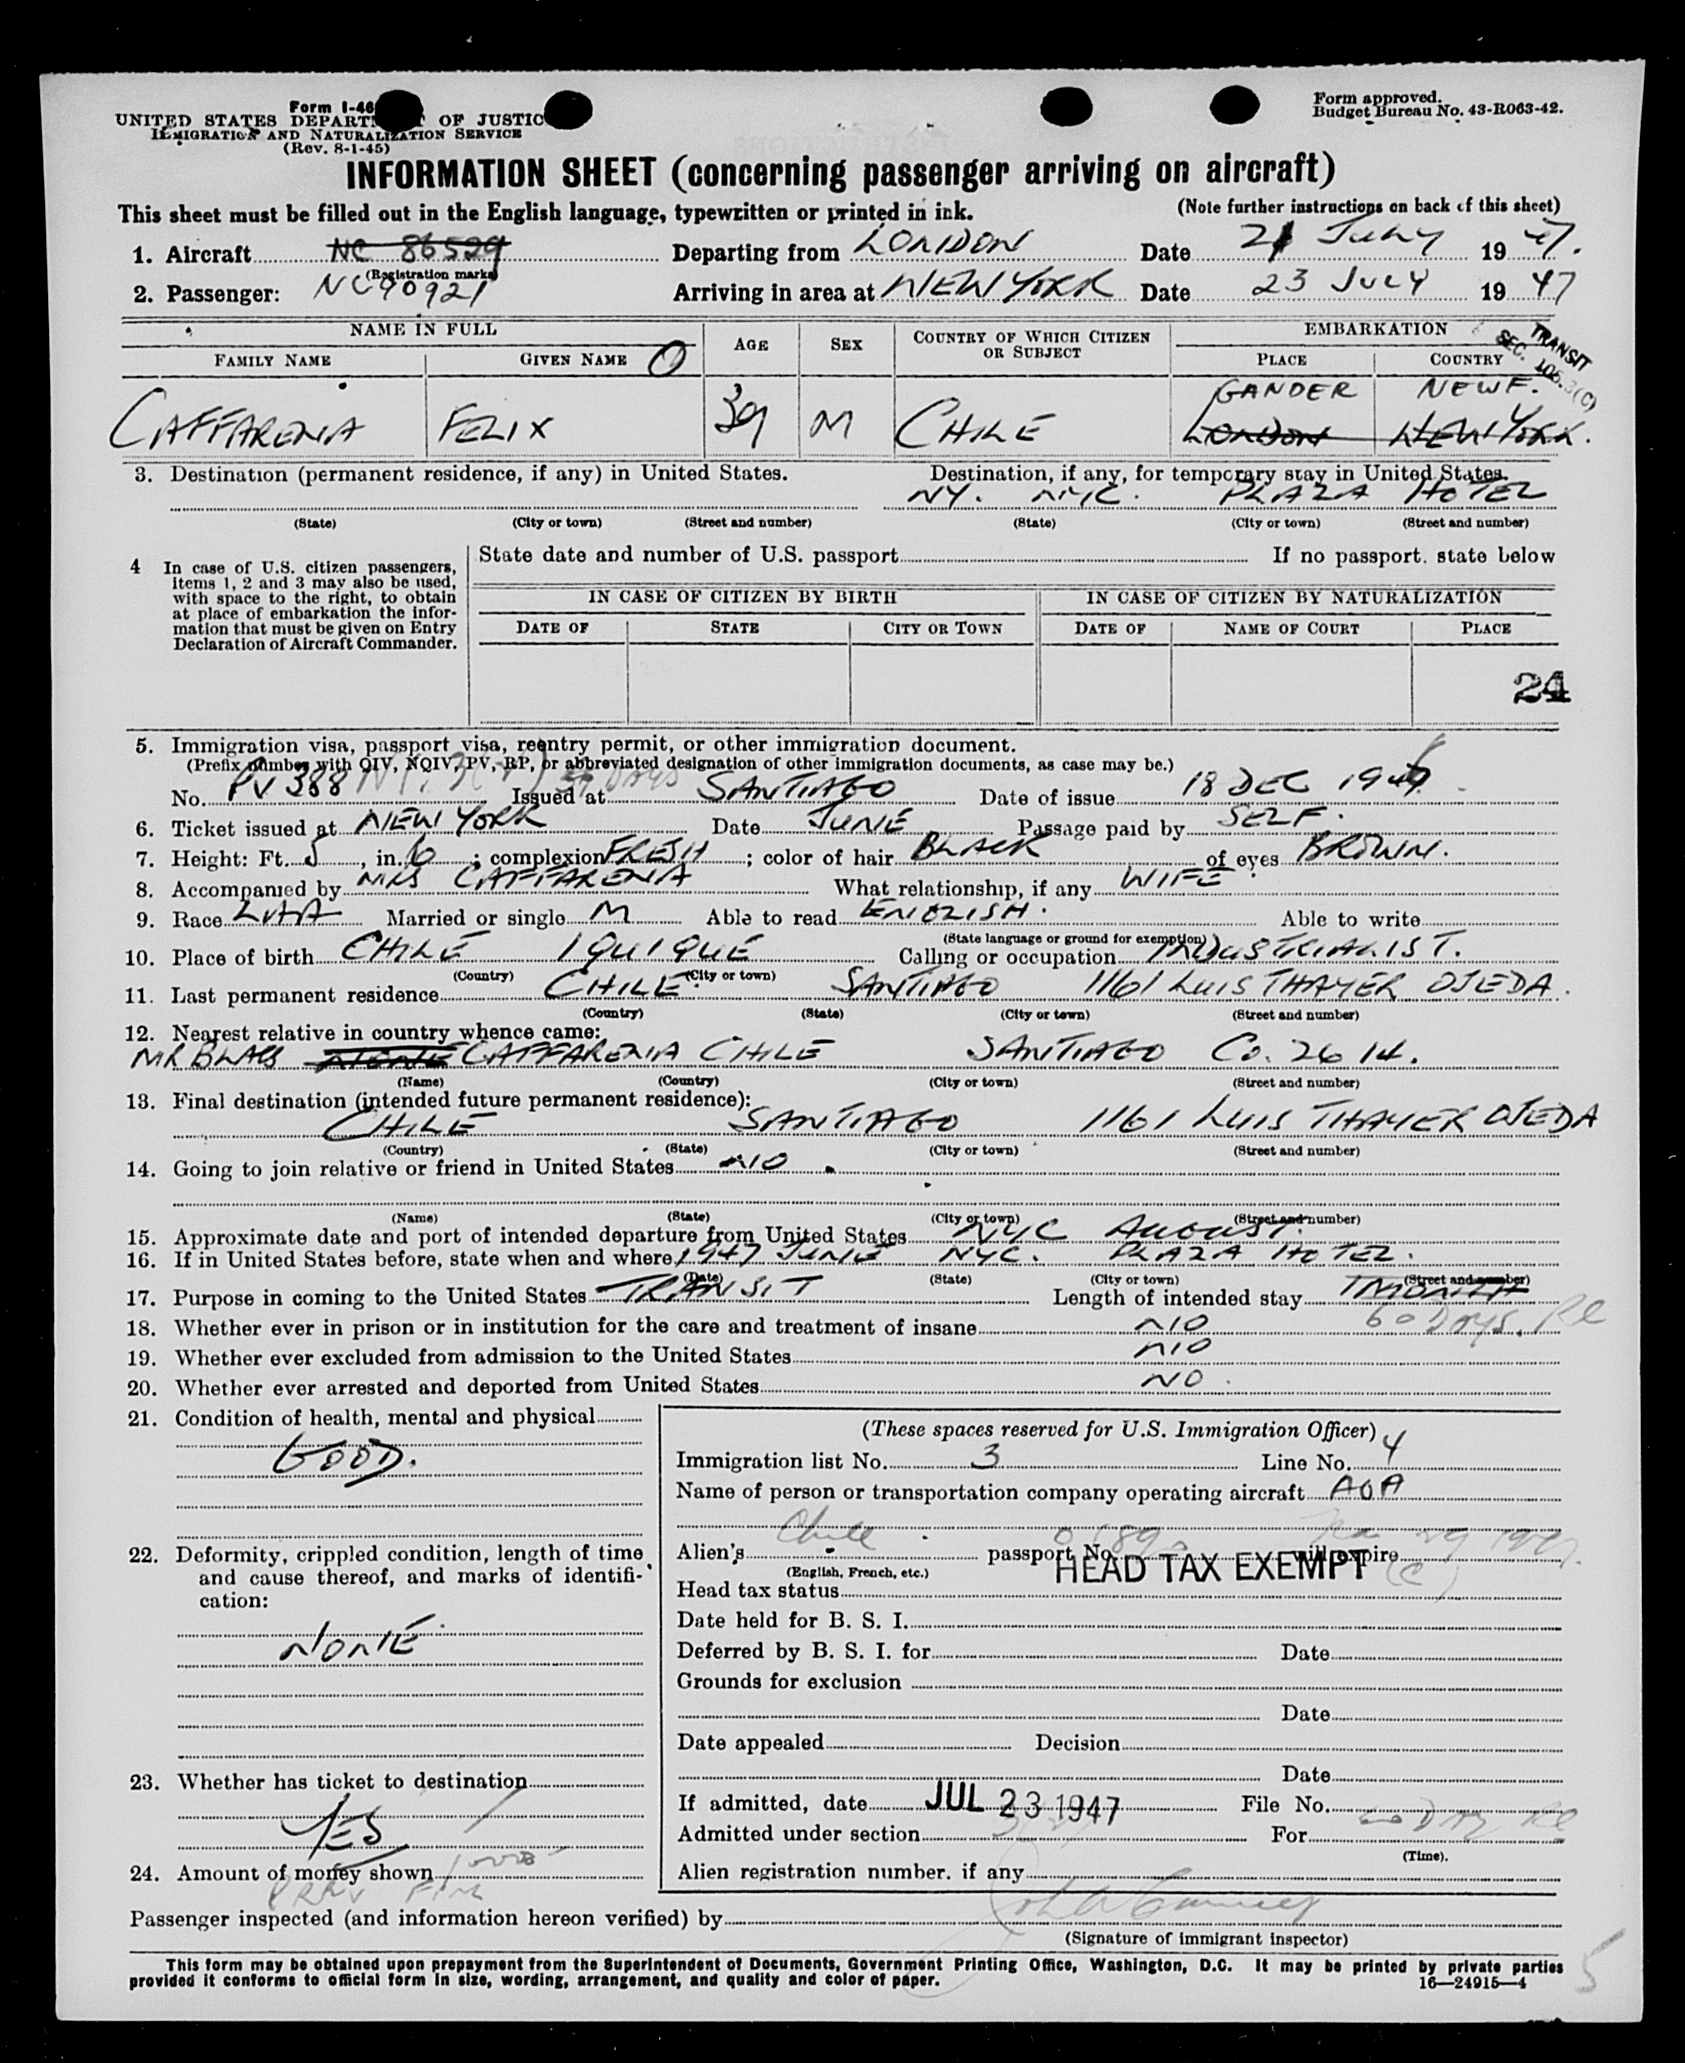 Form I-46
UNITED STATES DEPART OF JUSTIC
IMMIGRATION AND NATURALIZATION SERVICE
(Rev. 8-1-45)
Form approved.
Budget Bureau No. 43-R063-42.
INFORMATION SHEET (concerning passenger arriving on aircraft)
This sheet must be filled out in the English language, typewritten or printed in ink.
(Note further instructions on back of this sheet)
1. Aircraft NC 86529 Departing from LONDON Date 21 JULY 1947.
(Registration marks)
2. Passenger: NC90921 Arriving in area at NEW YORK Date 23 JULY 1947
NAME IN FULL AGE SEX COUNTRY OF WHICH CITIZEN OR SUBJECT EMBARKATION
TRANSIT
SEC. 106.3(C)
FAMILY NAME GIVEN NAME PLACE COUNTRY
GANDER NEWF.
CAFFARENA FELIX 39 M CHILE LONDON NEW YORK.
3. Destination (permanent residence, if any) in United States. Destination, if any, for temporary stay in United States.
NY. NYC. PLAZA HOTEL
(State) (City or town) (Street and number) (State) (City or town) (Street and number)
4 In case of U.S. citizen passengers, items 1, 2 and 3 may also be used, with space to the right, to obtain at place of embarkation the information that must be given on Entry Declaration of Aircraft Commander.
State date and number of U.S. passport If no passport, state below
IN CASE OF CITIZEN BY BIRTH IN CASE OF CITIZEN BY NATURALIZATION
DATE OF STATE CITY OR TOWN DATE OF NAME OF COURT PLACE
24
5. Immigration visa, passport visa, reentry permit, or other immigration document.
(Prefix number with QIV, NQIV, PV, RP, or abbreviated designation of other immigration documents, as case may be.)
No. PV 388 Issued at SANTIAGO Date of issue 18 DEC 1946
6. Ticket issued at NEW YORK Date JUNE Passage paid by SELF.
7. Height: Ft. 5, in. 6; complexion FRESH; color of hair BLACK of eyes BROWN.
8. Accompanied by MRS CAFFARENA What relationship, if any WIFE
9. Race Married or single M Able to read ENGLISH. Able to write
(State language or ground for exemption)
10. Place of birth CHILE IQUIQUE Calling or occupation INDUSTRIALIST.
(Country) (City or town)
11. Last permanent residence CHILE SANTIAGO 1161 LUIS THAYER OJEDA.
(Country) (State) (City or town) (Street and number)
12. Nearest relative in country whence came:
MR BLAS NONE CAFFARENA CHILE SANTIAGO Co. 2614.
(Name) (Country) (City or town) (Street and number)
13. Final destination (intended future permanent residence):
CHILE SANTIAGO 1161 LUIS THAYER OJEDA
(Country) (State) (City or town) (Street and number)
14. Going to join relative or friend in United States NO.
(Name) (State) (City or town) (Street and number)
15. Approximate date and port of intended departure from United States NYC AUGUST.
16. If in United States before, state when and where 1947 JUNE NYC. PLAZA HOTEL.
(Date) (State) (City or town) (Street and number)
17. Purpose in coming to the United States TRANSIT Length of intended stay 1 MONTH
60 Days.
18. Whether ever in prison or in institution for the care and treatment of insane NO
19. Whether ever excluded from admission to the United States NO
20. Whether ever arrested and deported from United States NO.
21. Condition of health, mental and physical
GOOD.
22. Deformity, crippled condition, length of time and cause thereof, and marks of identification:
NONE
23. Whether has ticket to destination
YES
24. Amount of money shown
(These spaces reserved for U.S. Immigration Officer)
Immigration list No. 3 Line No. 4
Name of person or transportation company operating aircraft AOA
Alien's Chile passport No. will expire
(English, French, etc.)
HEAD TAX EXEMPT (C)
Head tax status
Date held for B. S. I.
Deferred by B. S. I. for Date
Grounds for exclusion
Date
Date appealed Decision
Date
If admitted, date JUL 23 1947 File No.
Admitted under section For
(Time).
Alien registration number, if any
Passenger inspected (and information hereon verified) by
(Signature of immigrant inspector)
This form may be obtained upon prepayment from the Superintendent of Documents, Government Printing Office, Washington, D.C. It may be printed by private parties
provided it conforms to official form in size, wording, arrangement, and quality and color of paper. 16—24915—4
5